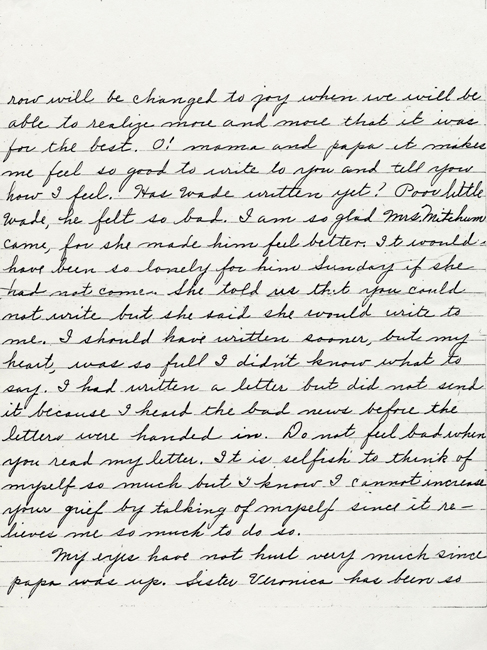 row will be changed to joy when we will be
able to realize more and more that it was
for the best. O! mama and papa it makes
me feel so good to write to you and tell you
how I feel. Has Wade written yet? Poor little
Wade, he felt so bad. I am so glad Mrs. Mitchum
came, for she made him feel better. It would
have been so lonely for him Sunday if she
had not come. She told us that you could
not write but she said she would write to
me. I should have written sooner, but my
heart, was so full I didn't know what to
say. I had written a letter but did not send
it because I heard the bad news before the
letters were handed in. Do not feel bad when
you read my letter. It is selfish to think of
myself so much but I know I cannot increase
your grief by talking of myself since it re-
lieves me so much to do so.
My eyes have not hurt very much since
papa was up. Sister Veronica has been so